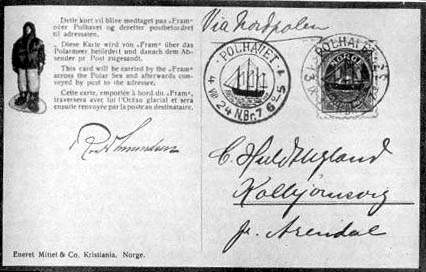 Dette kort vil blive medtaget paa „Fram"
over Polhavet og derefter postbefordret
til adressaten.
Diese Karte wird von „Fram" über das
Polarmeer befördert und danach dem Ab-
sender pr Post zugesandt.
This card will be carried by the „Fram"
across the Polar Sea and afterwards con-
veyed by post to the adressee.
Cette carte, emportée à bord du „Fram",
traversera avec lui l'Océan glacial et sera
ensuite renvoyée par la poste au destinataire.
Via Nordpolen
POLHAVET
24 N.Br. 7
POLHA
NORGE
Kolbjörnsvig
pr. Arendal
Eneret Mittet & Co. Kristiania. Norge.